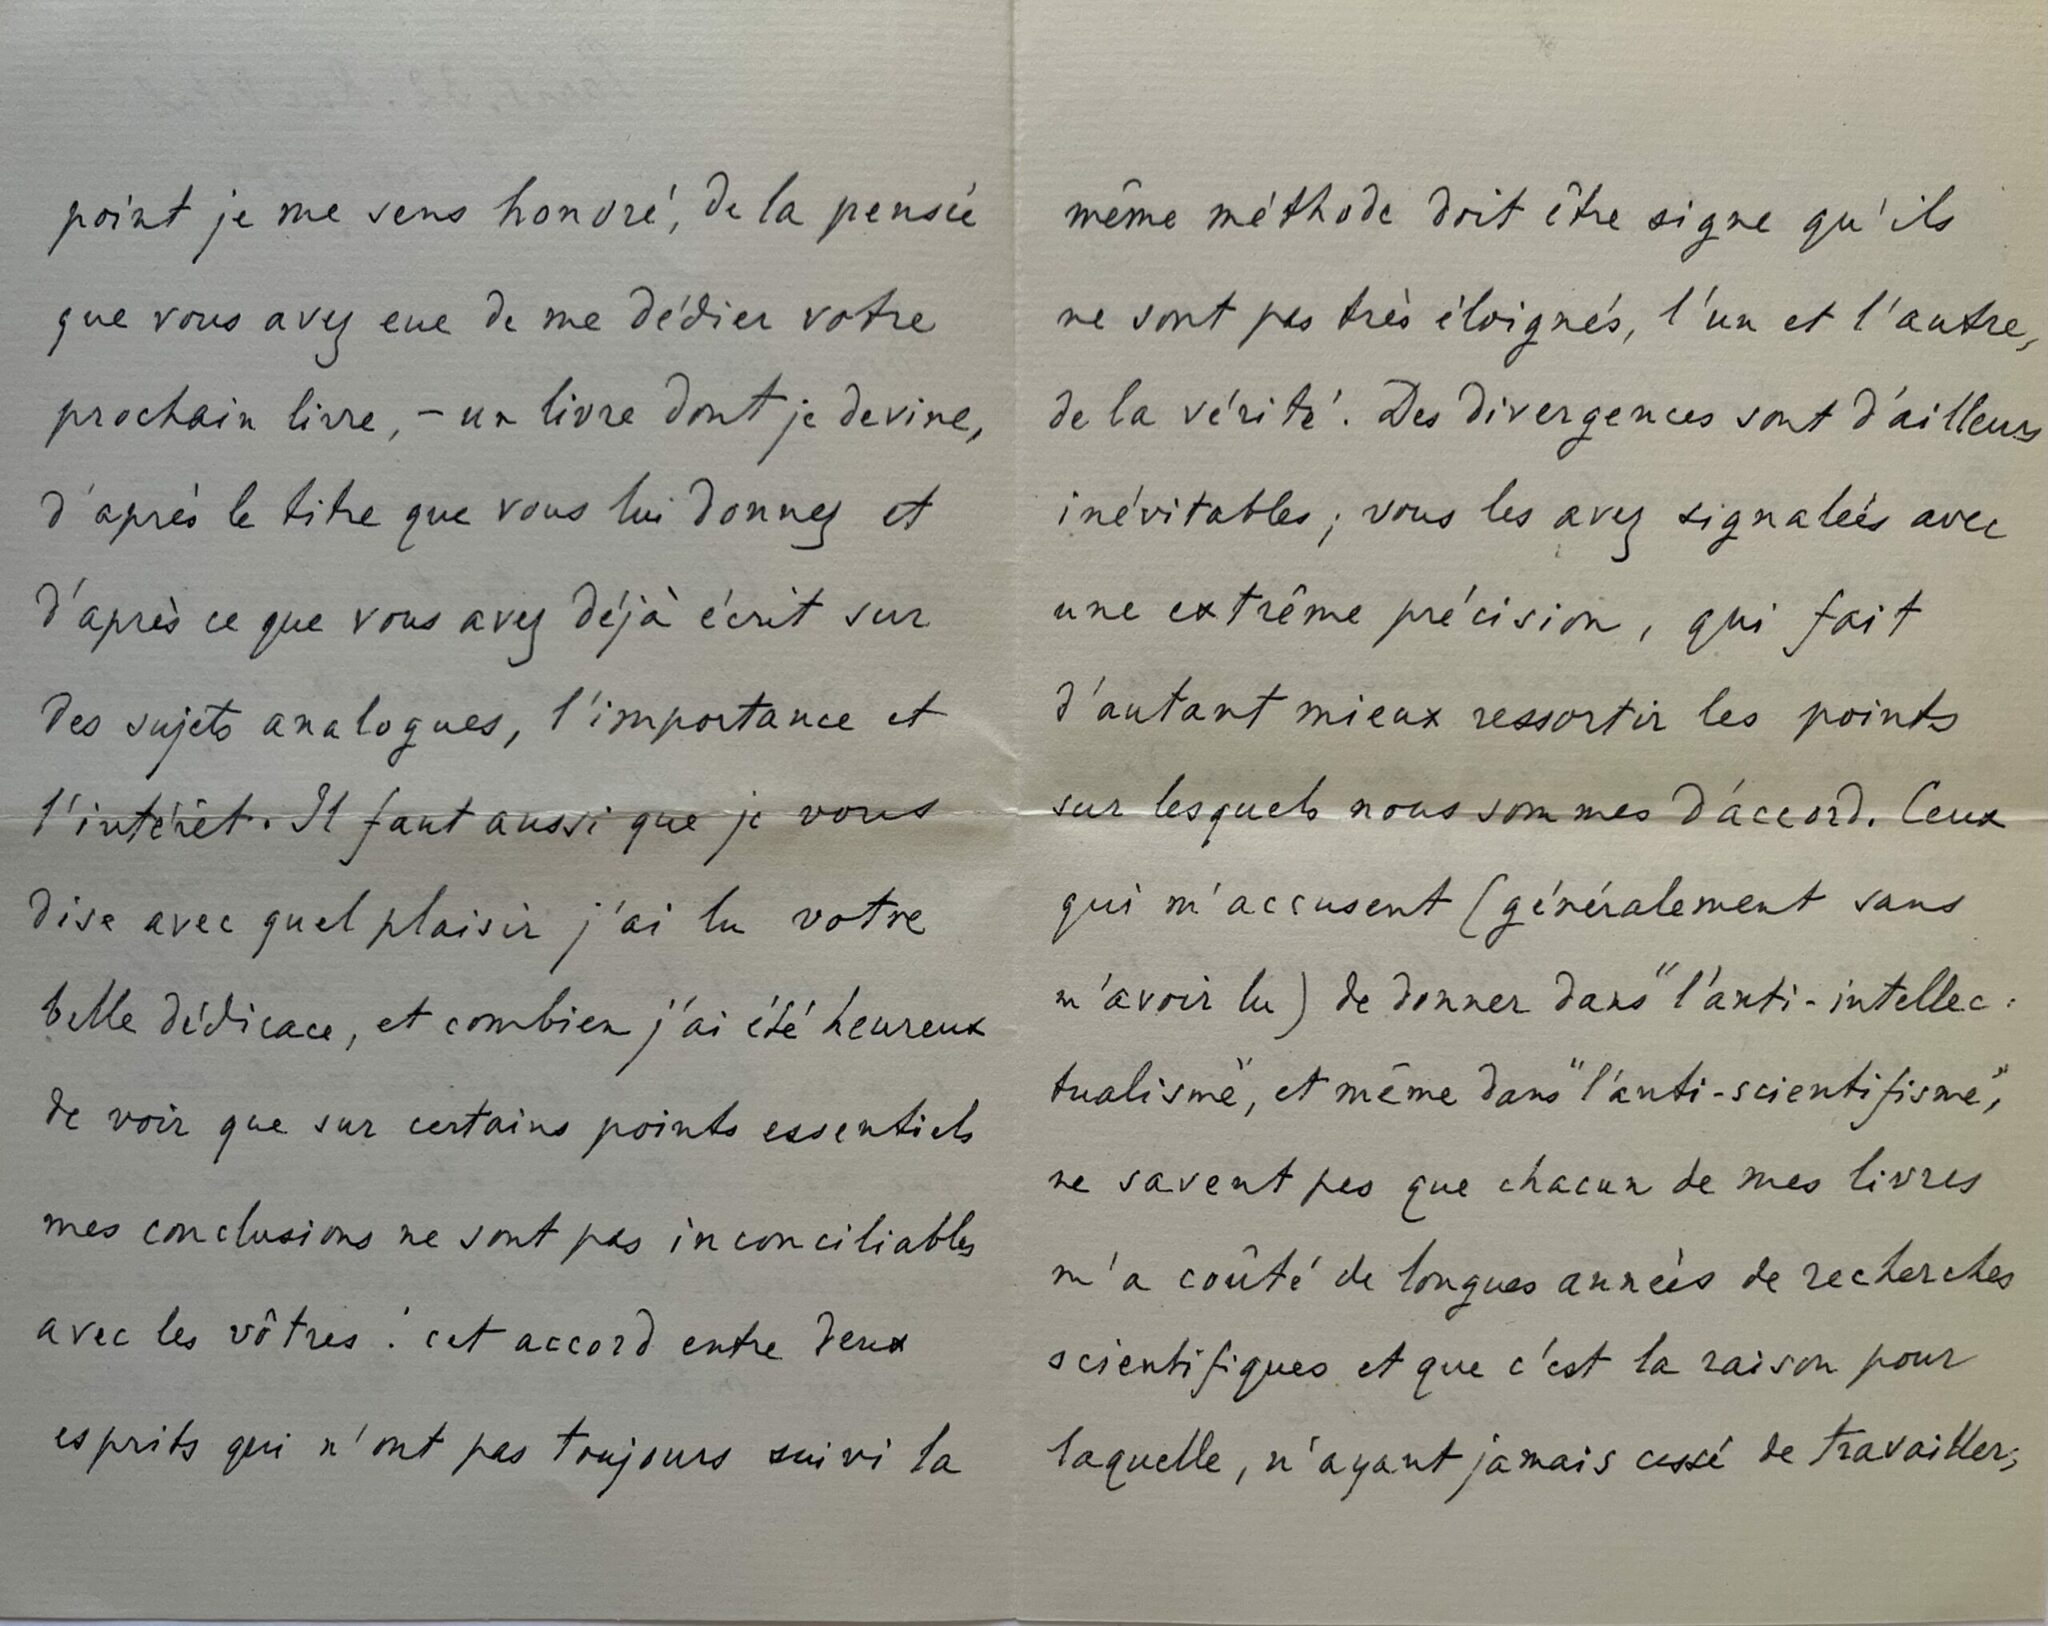 point je me sens honoré, de la pensée
que vous avez eue de me dédier votre
prochain livre, – un livre dont je devine,
d'après le titre que vous lui donnez et
d'après ce que vous avez déjà écrit sur
des sujets analogues, l'importance et
l'intérêt. Il faut aussi que je vous
dise avec quel plaisir j'ai lu votre
belle dédicace, et combien j'ai été heureux
de voir que sur certains points essentiels
mes conclusions ne sont pas inconciliables
avec les vôtres : cet accord entre deux
esprits qui n'ont pas toujours suivi la
même méthode doit être signe qu'ils
ne sont pas très éloignés, l'un et l'autre,
de la vérité. Des divergences sont d'ailleurs
inévitables ; vous les avez signalées avec
une extrême précision, qui fait
d'autant mieux ressortir les points
sur lesquels nous sommes d'accord. Ceux
qui m'accusent (généralement sans
m'avoir lu) de donner dans "l'anti-intellec-
tualisme", et même dans "l'anti-scientifisme",
ne savent pas que chacun de mes livres
m'a coûté de longues années de recherches
scientifiques et que c'est la raison pour
laquelle, n'ayant jamais cessé de travailler,